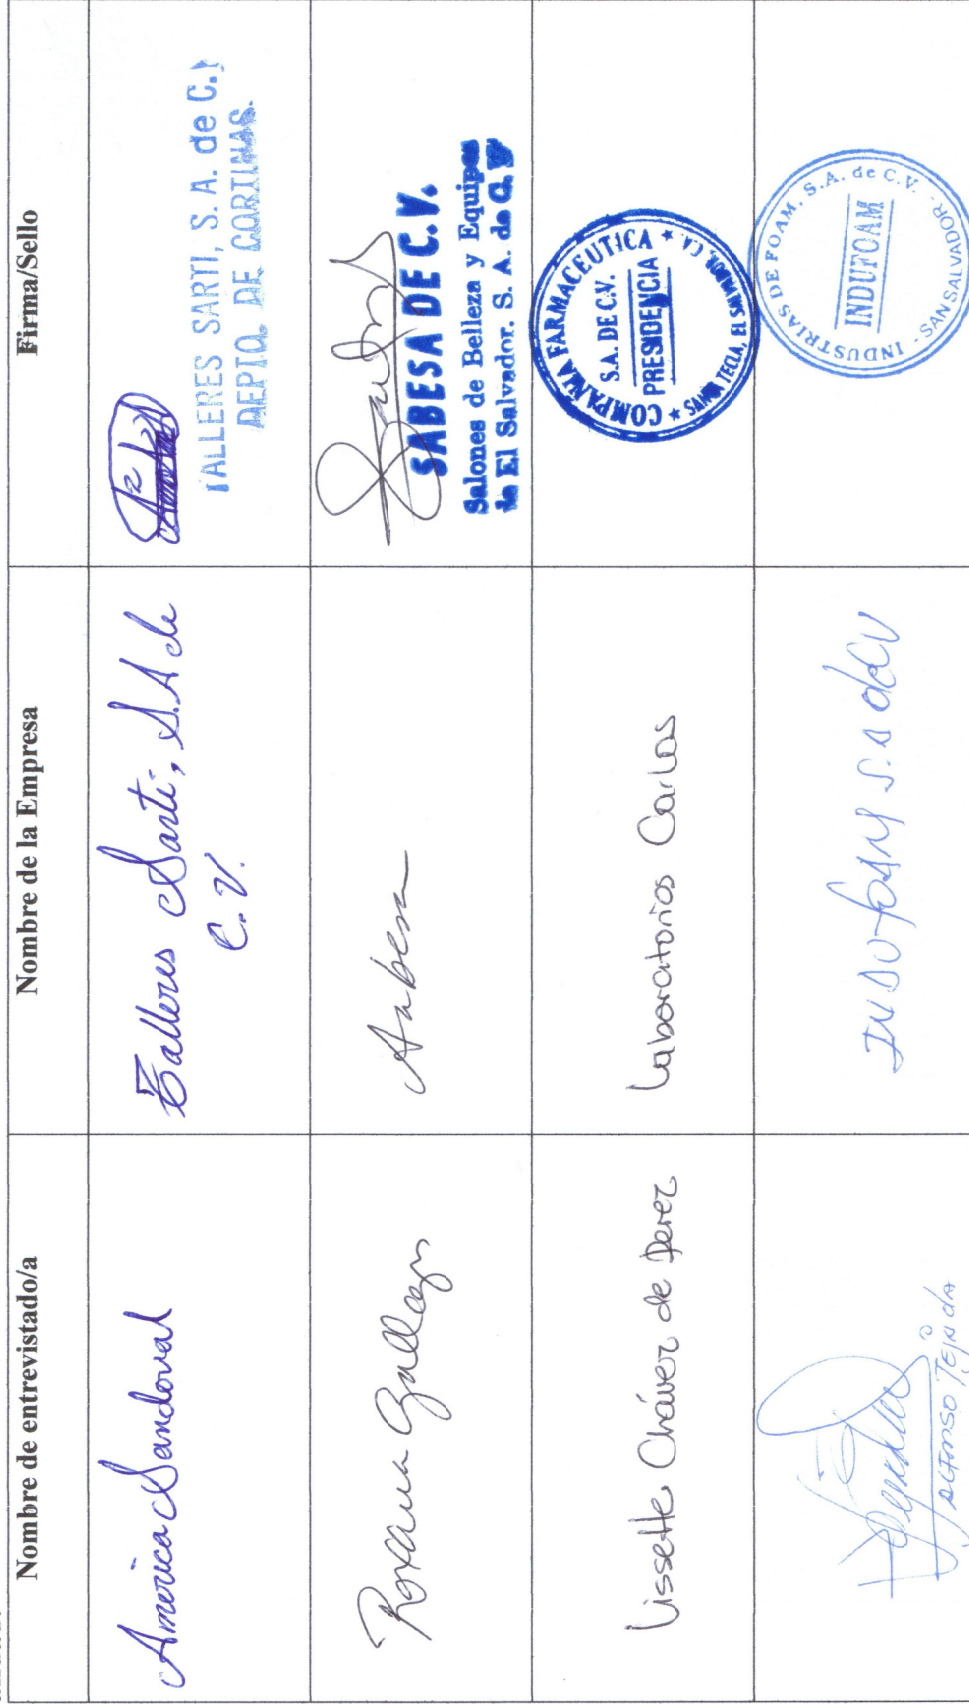 Nombre de entrevistado/a
Nombre de la Empresa
Firma/Sello
America Sandoval
Talleres Sarti, S.A de
C.V.
TALLERES SARTI, S. A. de C.V
DEPTO. DE CORTINAS.
Roxana Gallegos
Sabesa
SABESA DE C.V.
Salones de Belleza y Equipos
de El Salvador. S. A. de C. V
Lissette Cháver de Perez
Laboratorios Carlos
COMPAÑIA FARMACEUTICA
S.A. DE C.V.
PRESIDENCIA
SANTA TECLA, EL SALVADOR, C.A.
Alfonso Tejada
INDUFOAM S.A de CV
INDUSTRIAS DE FOAM, S.A. de C.V.
INDUFOAM
SAN SALVADOR